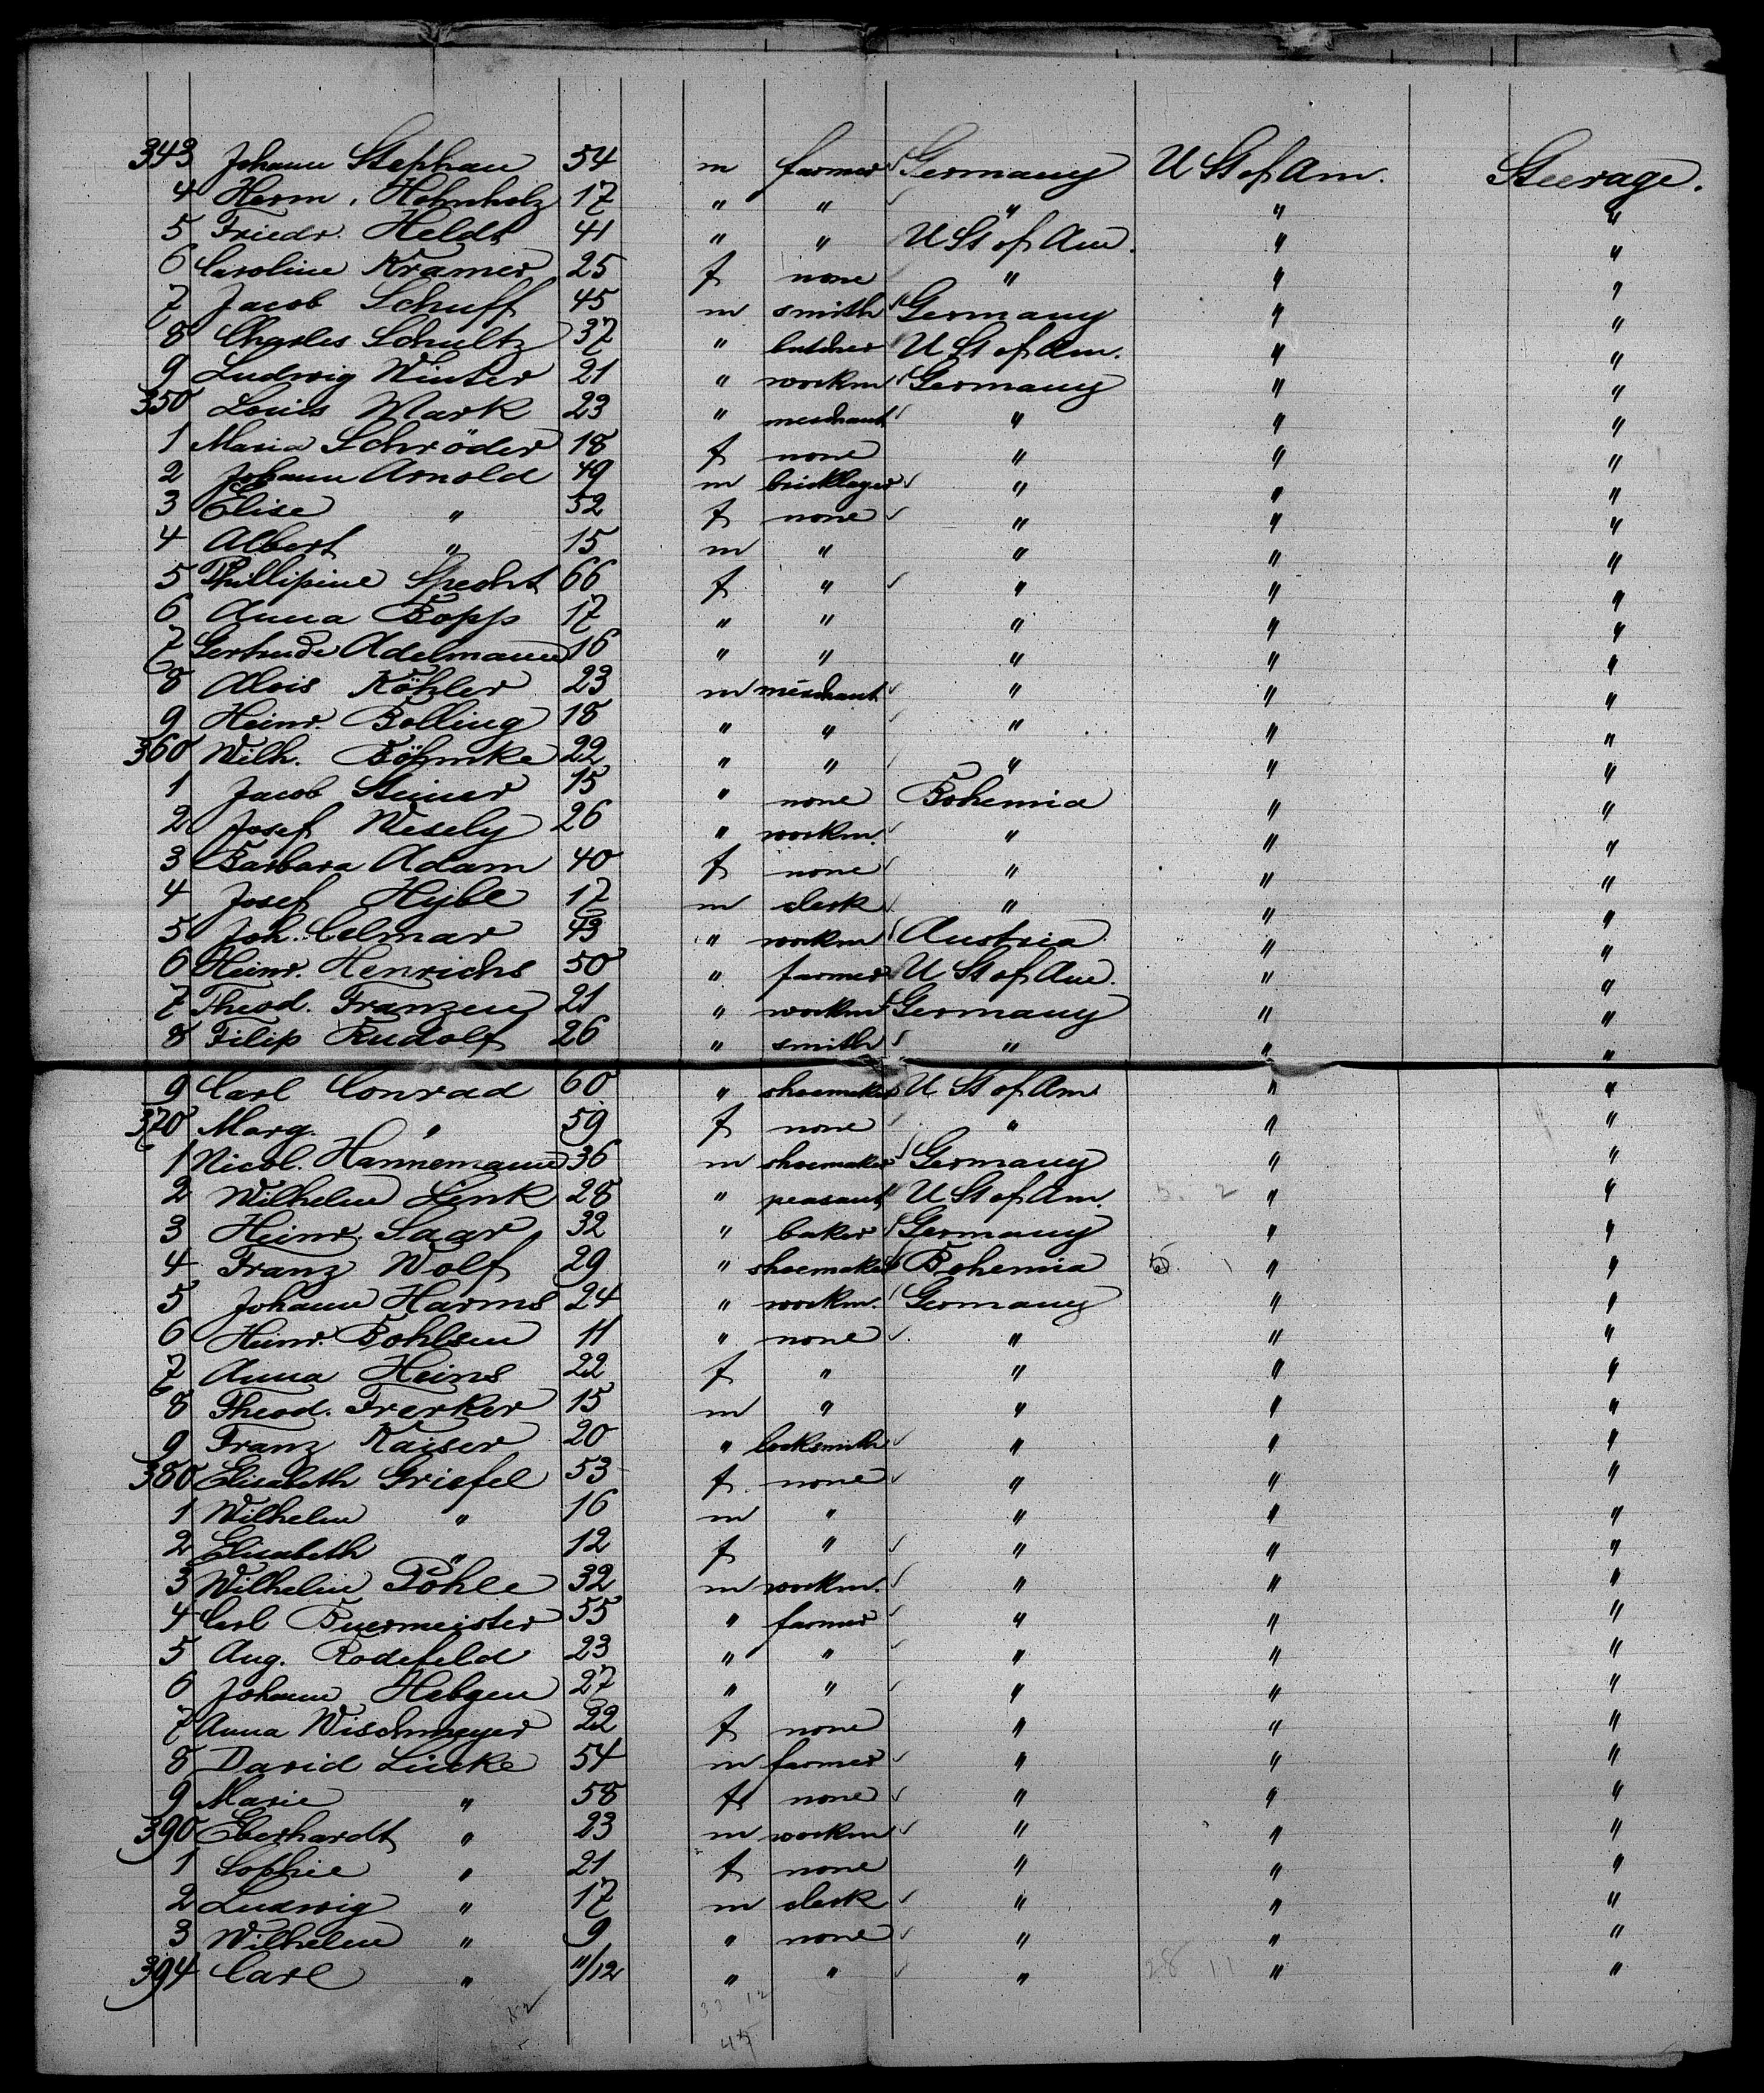 343 Johann Stephan 54 m farmer Germany U St of Am. Steerage.
4 Herm. Helmholz 17 " " " " "
5 Friedr. Heldt 41 " " U St of Am. " "
6 Caroline Kramer 25 f none " " "
7 Jacob Schuff 45 m smith Germany " "
8 Charles Schultz 37 " butcher U St of Am. " "
9 Ludwig Winter 21 " workm Germany " "
350 Louis Mark 23 " merchant " " "
1 Maria Schröder 18 f none " " "
2 Johann Arnold 49 m bricklayer " " "
3 Elise " 52 f none " " "
4 Albert " 15 m " " " "
5 Phillipine Specht 66 f " " " "
6 Anna Bopp 17 " " " " "
7 Gertrude Adelmann 16 " " " " "
8 Alois Köhler 23 m merchant " " "
9 Heinr. Bolling 18 " " " " "
360 Wilh. Böhmke 22 " " " " "
1 Jacob Steiner 15 " none Bohemia " "
2 Josef Wesely 26 " workm. " " "
3 Barbara Adam 40 f none " " "
4 Josef Hyble 17 m clerk " " "
5 Joh. Celmar 43 " workm Austria " "
6 Heinr. Henrichs 50 " farmer U St of Am. " "
7 Theod. Franzen 21 " workm Germany " "
8 Filip Rudolf 26 " smith " " "
9 Carl Conrad 60 " shoemaker U St of Am " "
370 Marg. " 59 f none " " "
1 Nicol. Hannemann 36 m shoemaker Germany " "
2 Wilhelm Link 28 " peasant U St of Am. 5. 2 " "
3 Heinr. Saar 32 " baker Germany " "
4 Franz Wolf 29 " shoemaker Bohemia 1 " "
5 Johann Harms 24 " workm. Germany " "
6 Heinr. Bohlsen 11 " none " " "
7 Anna Heins 22 f " " " "
8 Theod. Frerker 15 m " " " "
9 Franz Kaiser 20 " locksmith " " "
380 Elisabeth Griefel 53 f none " " "
1 Wilhelm " 16 m " " " "
2 Elisabeth " 12 f " " " "
3 Wilhelm Pohle 32 m workm. " " "
4 Carl Buermeister 55 " farmer " " "
5 Aug. Rodefeld 23 " " " " "
6 Johann Hebgen 27 " " " " "
7 Anna Wischmeyer 22 f none " " "
8 David Lücke 54 m farmer " " "
9 Marie " 58 f none " " "
390 Eberhardt " 23 m workm " " "
1 Sophie " 21 f none " " "
2 Ludwig " 17 m clerk " " "
3 Wilhelm " 9 " none " " "
394 Carl " 11/12 " " " 28 11 " "
33 12